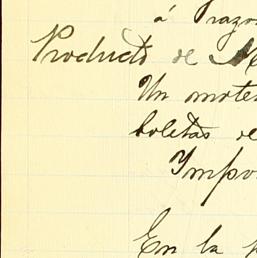 á razo
Producto de Me
Un mote
boletas de
Impo
En la p